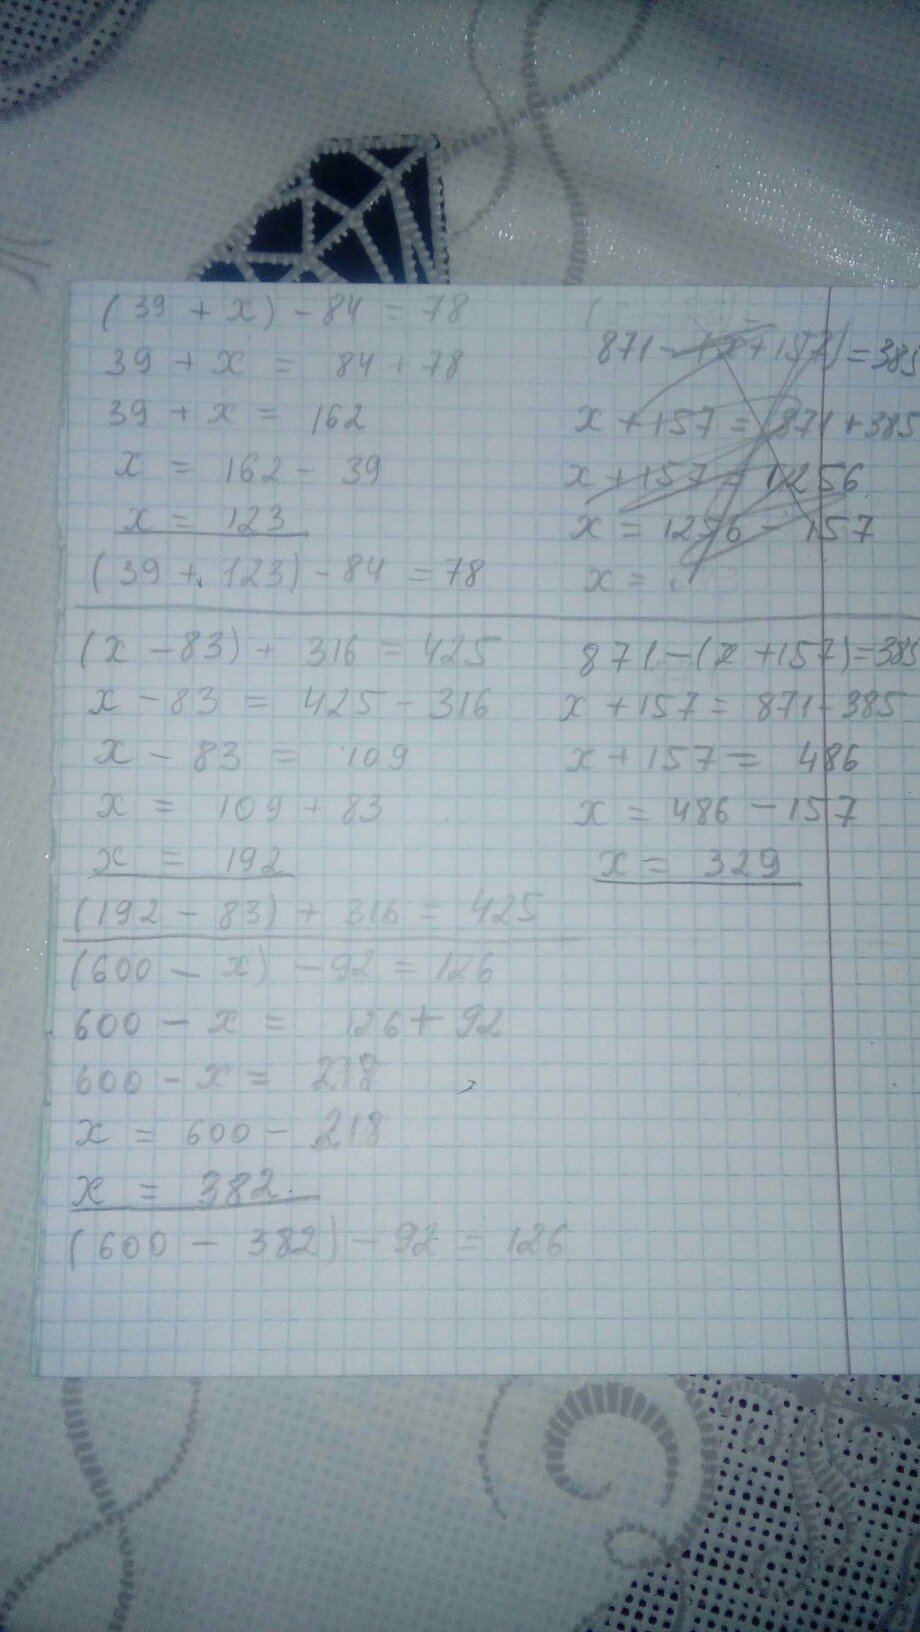 (39 + x) - 84 = 78
39 + x = 84 + 78
39 + x = 162
x = 162 - 39
x = 123
(39 + 123) - 84 = 78
(x - 83) + 316 = 425
x - 83 = 425 - 316
x - 83 = 109
x = 109 + 83
x = 192
(192 - 83) + 316 = 425
(600 - x) - 92 = 126
600 - x = 126 + 92
600 - x = 218
x = 600 - 218
x = 382
(600 - 382) - 92 = 126
871 - (x + 157) = 385
x + 157 = 871 + 385
x + 157 = 1256
x = 1256 - 157
x =
871 - (x + 157) = 385
x + 157 = 871 - 385
x + 157 = 486
x = 486 - 157
x = 329